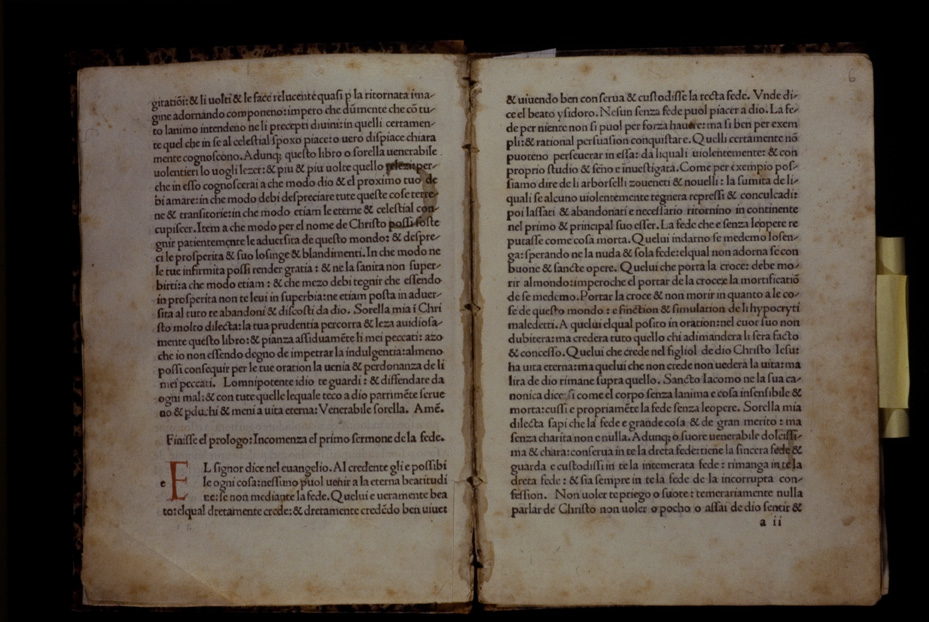 gitatiōi: & li uolti & le face relucente quasi p la ritornata ima-
gine adornando componeno: impero che dūmente che cō tu-
to lanimo intendeno ne li precepti diuini: in quelli certamen-
te quel che in se al celestial spoxo piace: o uero dispiace chiara
mente cognoscono. Adunq; questo libro o sorella uenerabile
uolentieri lo uogli lezer: & piu & piu uolte quello
che in esso cognoscerai a che modo dio & el proximo tuo de
bi amare: in che modo debi despreciare tute queste cose terre-
ne & transitorie: in che modo etiam le eterne & celestial con-
cupiscer. Item a che modo per el nome de Christo possi soste
gnir patientemente le aduersita de questo mondo: & despre-
ci le prosperita & suo losinge & blandimenti. In che modo ne
le tue infirmita possi render gratia: & ne la sanita non super-
birti: a che modo etiam: & che mezo debi tegnir che essendo
in prosperita non te leui in superbia: ne etiam posta in aduer-
sita al tuto te abandoni & discosti da dio. Sorella mia i Chri
sto molto dilecta: la tua prudentia percorra & leza auidiosa-
mente questo libro: & pianza assiduamēte li mei peccati: azo
che io non essendo degno de impetrar la indulgentia: almeno
possi consequir per le tue oration la uenia & perdonanza de li
mei peccati. Lomnipotente idio te guardi: & diffendare da
ogni mal: & con tute quelle lequale teco a dio parimēte serue
no & pduchi & meni a uita eterna: Venerabile sorella. Amē.
Finisse el prologo: Incomenza el primo sermone de la fede.
e EL signor dice nel euangelio. Al credente gli e possibi
le ogni cosa: nessuno puol uenir a la eterna beatitudi
ne: se non mediante la fede. Quelui e ueramente bea
to: elqual dretamente crede: & dretamente credēdo ben uiue:
6
& uiuendo ben conserua & custodisse la recta fede. Vnde di-
ce el beato ysidoro. Nesun senza fede puol piacer a dio. La fe-
de per niente non si puol per forza hauere: ma si ben per exem
pli: & rational persuasion conquistare. Quelli certamente nō
puoteno perseuerar in essa: da li quali uiolentemente: & con
proprio studio & seno e inuestigata. Come per exempio pos-
siamo dire de li arborselli zoueneti & nouelli: la sumita de li-
quali se alcuno uiolentemente tegnera repressi & conculcadi:
poi lassati & abandonati e necessario ritornino in continente
nel primo & principal suo esser. La fede che e senza leopere re
putasse come cosa morta. Quelui indarno se medemo losen-
ga: sperando ne la nuda & sola fede: elqual non adorna se con
buone & sancte opere. Quelui che porta la croce: debe mo-
rir al mondo: imperoche el portar de la croce: e la mortificatiō
de se medemo. Portar la croce & non morir in quanto a le co-
se de questo mondo: e finction & simulation de li hypocryti
maledetti. A quelui elqual posito in oration: nel cuor suo non
dubitera: ma credera tuto quello chi adimandera li sera facto
& concesso. Quelui che crede nel figliol de dio Christo Iesu:
ha uita eterna: ma quelui che non crede non uedera la uita: ma
lira de dio rimane supra quello. Sancto Iacomo ne la sua ca-
nonica dice: si come el corpo senza lanima e cosa insensibile &
morta: cussi e propriamēte la fede senza leopere. Sorella mia
dilecta sapi che la fede e grande cosa & de gran merito: ma
senza charita non e nulla. Adunq; o suore uenerabile dolcissi-
ma & chara: conserua in te la dreta fede: tiene la sincera fede &
guarda e custodissi in te la intemerata fede: rimanga in te la
dreta fede: & sia sempre in te la fede de la incorrupta con-
fession. Non uoler te priego o suore: temerariamente nulla
parlar de Christo non uoler o pocho o assai de dio sentir &
a ii